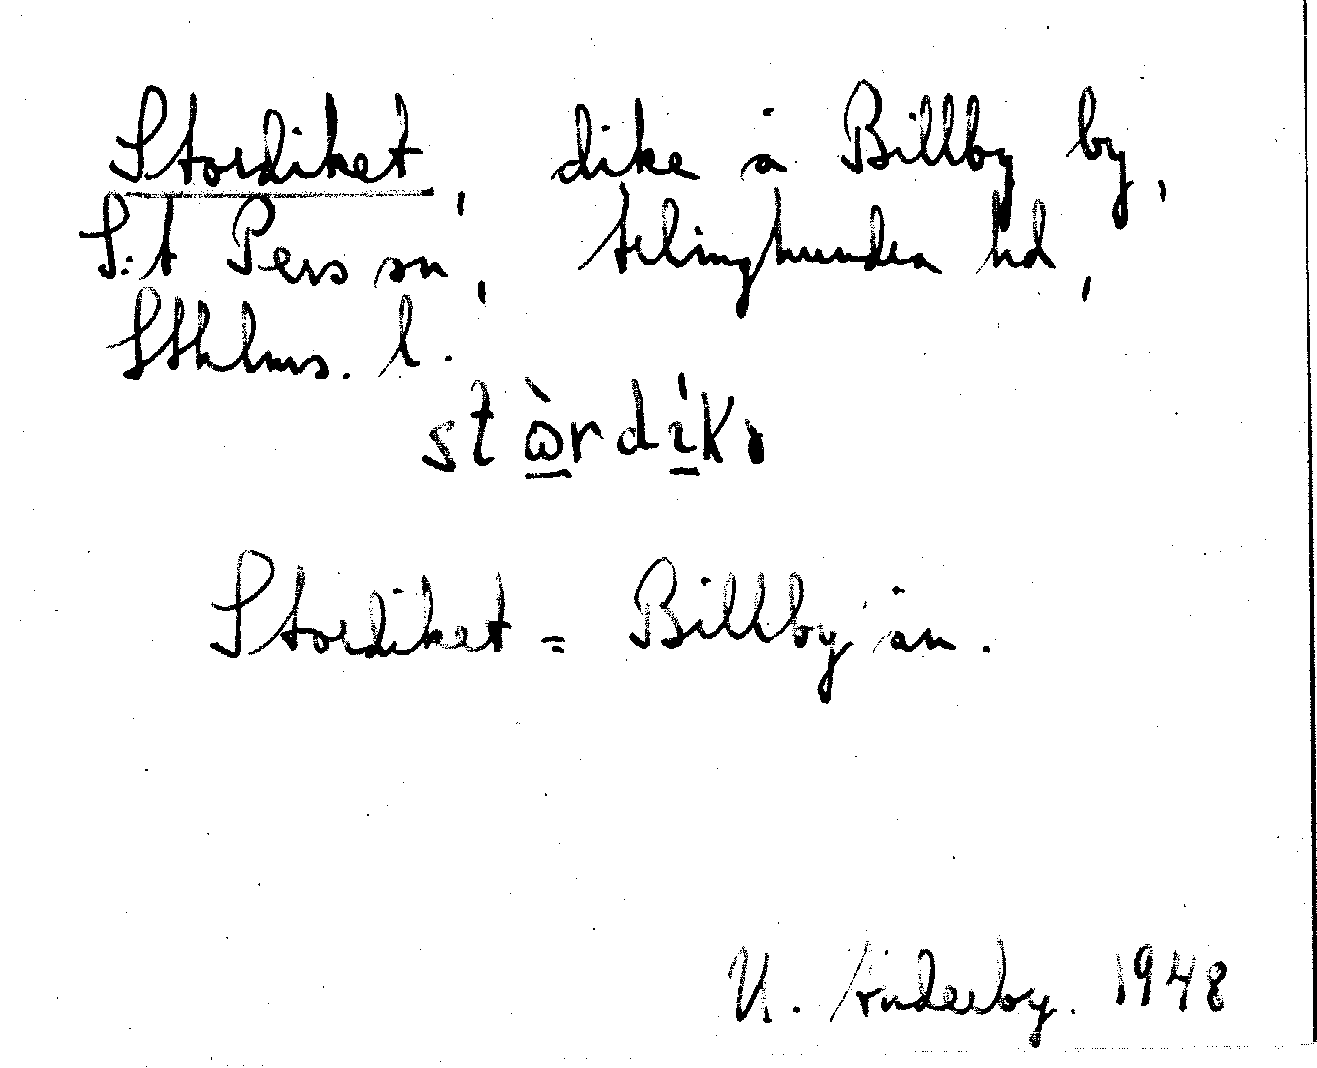 Stordiket, dike å Billby by,
S:t Pers sn, Ærlinghundra hd,
Sthlms. l.
stὼ̲rdí̲k,
Stordiket = Billby ån.
U. 1948